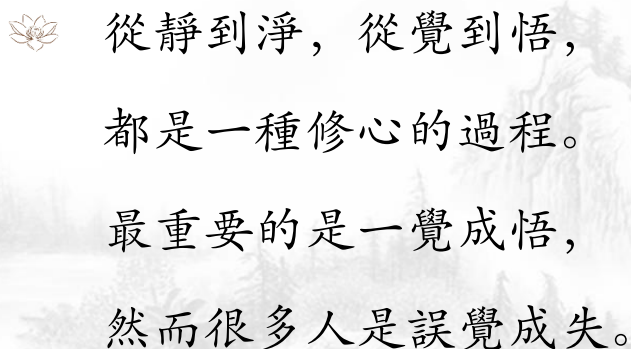 從靜到淨，從覺到悟，
都是一種修心的過程。
最重要的是一覺成悟，
然而很多人是誤覺成失。